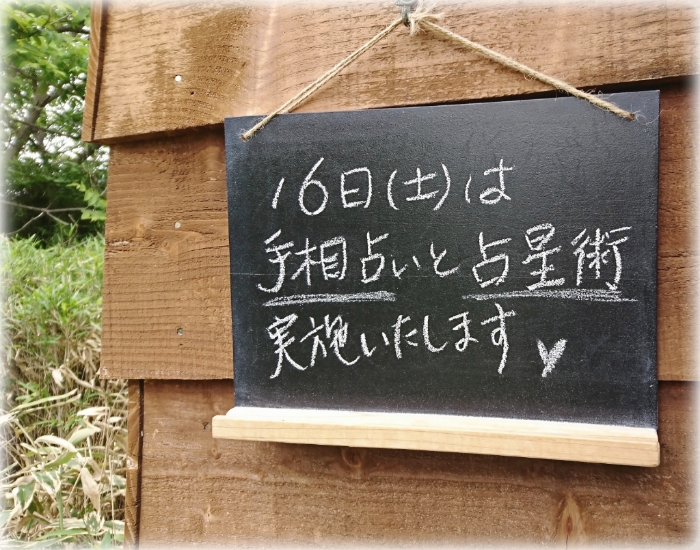 16日(土)は
手相占いと占星術
実施いたします♥